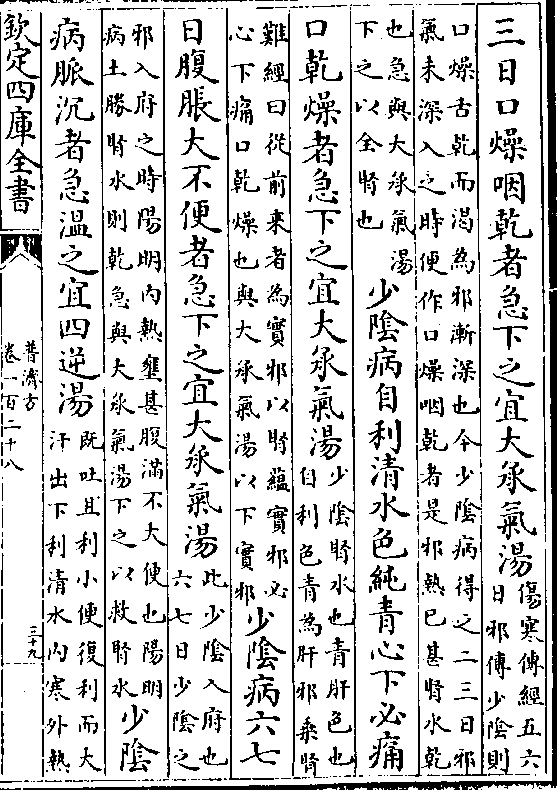 三日口燥咽乾者急下之宜大承氣湯傷寒傳經五六
日邪傳少陰則
口燥舌乾而渴為邪漸深也今少陰病得之二三日邪
氣未深入之時便作口燥咽乾者是邪熱已甚腎水乾
也急與大承氣湯
下之以全腎也
少陰病自利清水色純青心下必痛
口乾燥者急下之宜大承氣湯少陰腎水也青肝色也
自利色青為肝邪乘腎
難經曰從前來者為實邪以腎蘊實邪必
心下痛口乾燥也與大承氣湯以下實邪
少陰病六七
日腹脹大不便者急下之宜大承氣湯此少陰入府也
六七日少陰之
邪入府之時陽明内熱壅甚腹滿不大便也陽明
病土勝腎水則乾急與大承氣湯下之以救腎水
少陰
病脈沉者急溫之宜四逆湯既吐且利小便復利而大
汗出下利清水内寒外熱
欽定四庫全書
普濟方
卷一百二十八
三十九